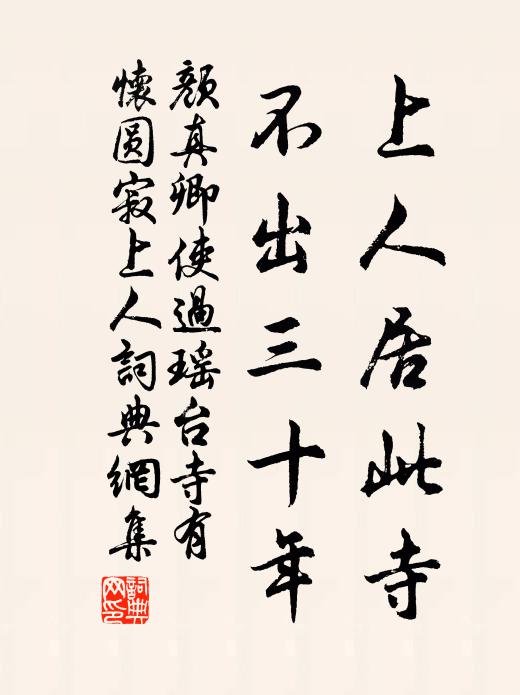 上人居此寺
不出三十年
颜真卿使過瑶台寺有
懷圆寂上人詞典網集
詞典網印